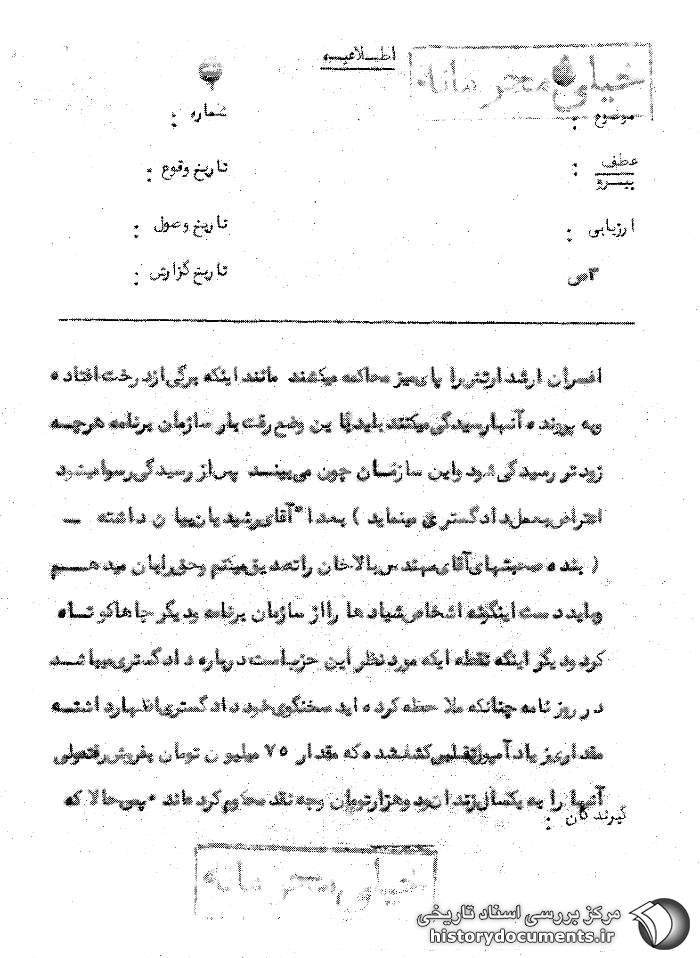 خیلی محرمانه
اطلاعیه
موضوع :
شماره :
عطف :
پیرو
تاریخ وقوع :
ارزیابی :
تاریخ وصول :
۳ص
تاریخ گزارش :
افسران ارشد ارتش را پای میز محاکمه میکشند مانند اینکه برگی از درخت افتاده
وبه پرونده آنها رسیدگی میکنند باید با این وضع رقت بار سازمان برنامه هرچه
زودتر رسیدگی شود واین سازمان چون می بیند پس از رسیدگی رسوا میشود
اعتراض بعمل دادگستری مینماید ) بعدا" آقای رشیدیان بیان داشته —
( بنده صحبتهای آقای مهندس بالاخان را تصدیق میکنم وحق را بایشان میدهم
وباید دست اینگونه اشخاص شیاد ها را از سازمان برنامه ودیگر جاها کوتاه
کرد ودیگر اینکه نقطه ایکه مورد نظر این حزب است درباره دادگستری میباشد
در روزنامه چنانکه ملاحظه کرده اید سخنگوی خود دادگستری اظهار داشته
مقداری زیاد آمپول تقلبی کشف شده که مقدار ۷۵ میلیون تومان بفروش رفته ولی
آنها را به یکسال زندان ودوهزار تومان وجه نقد محکوم کرده اند ۰ پس حالا که
گیرندگان :
خیلی محرمانه
مرکز بررسی اسناد تاریخی
historydocuments.ir